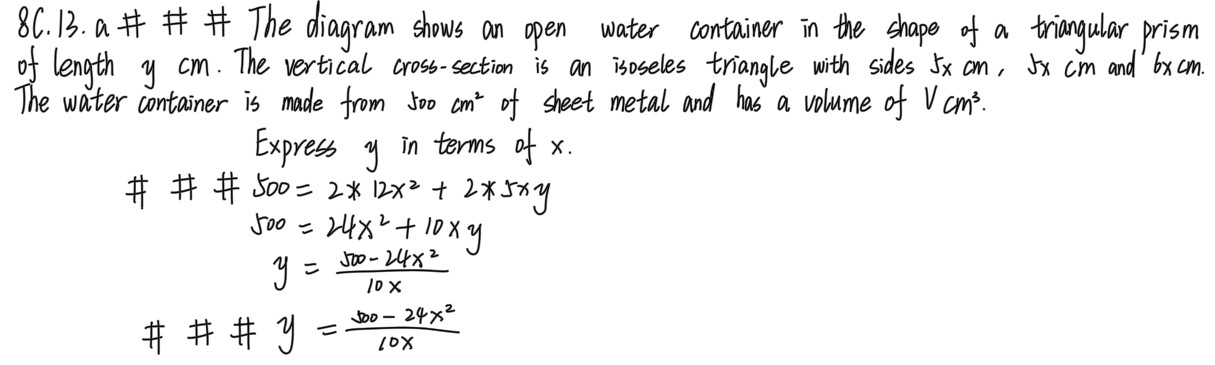 8C.13.a # # # The diagram shows an open water container in the shape of a triangular prism
of length y cm. The vertical cross-section is an isoseles triangle with sides 5x cm, 5x cm and 6x cm.
The water container is made from 500 cm² of sheet metal and has a volume of V cm³.
Express y in terms of x.
# # # 500 = 2* 12x² + 2*5xy
500 = 24x² + 10xy
y = \frac{500-24x²}{10x}
# # # y = \frac{500-24x²}{10x}